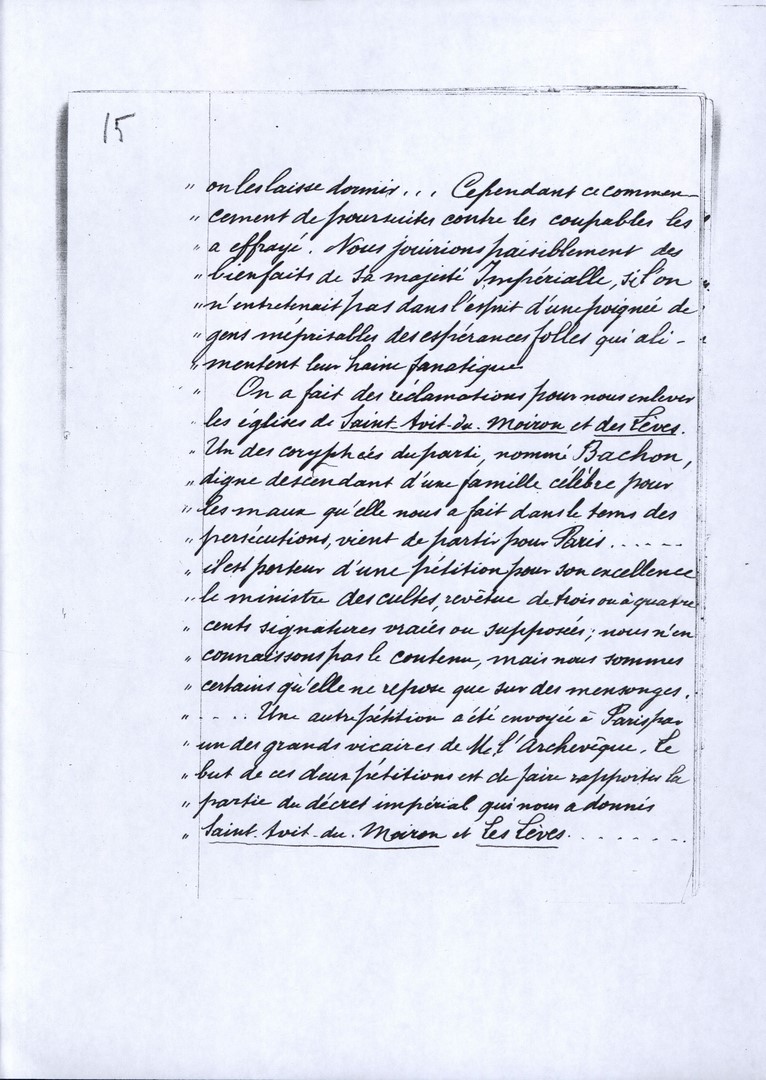 15
" on les laisse dormir... Cependant ce commen-
" cement de poursuites contre les coupables les
" a effrayé. Nous jouirions paisiblement des
" bienfaits de sa majesté Impérialle, si l'on
" n'entretenait pas dans l'esprit d'une poignée de
" gens méprisables des espérances folles qui ali-
" mentent leur haine fanatique
" On a fait des réclamations pour nous enlever
" les églises de Saint-Avit-du-Moiron et des Lèves.
" Un des coryphées du parti, nommé Bachon,
" digne descendant d'une famille célèbre pour
" les maux qu'elle nous a fait dans le tems des
" persécutions, vient de partir pour Paris......
" il est porteur d'une pétition pour son excellence
" le ministre des cultes, revêtue de trois ou à quatre
" cents signatures vraies ou supposées; nous n'en
" connaissons pas le contenu, mais nous sommes
" certains qu'elle ne repose que sur des mensonges.
" .... Une autre pétition a été envoyée à Paris par
" un des grands vicaires de M. l'Archevêque. Le
" but de ces deux pétitions est de faire rapporter la
" partie du décret impérial qui nous a donnés
" Saint-Avit-du-Moiron et Les Lèves........